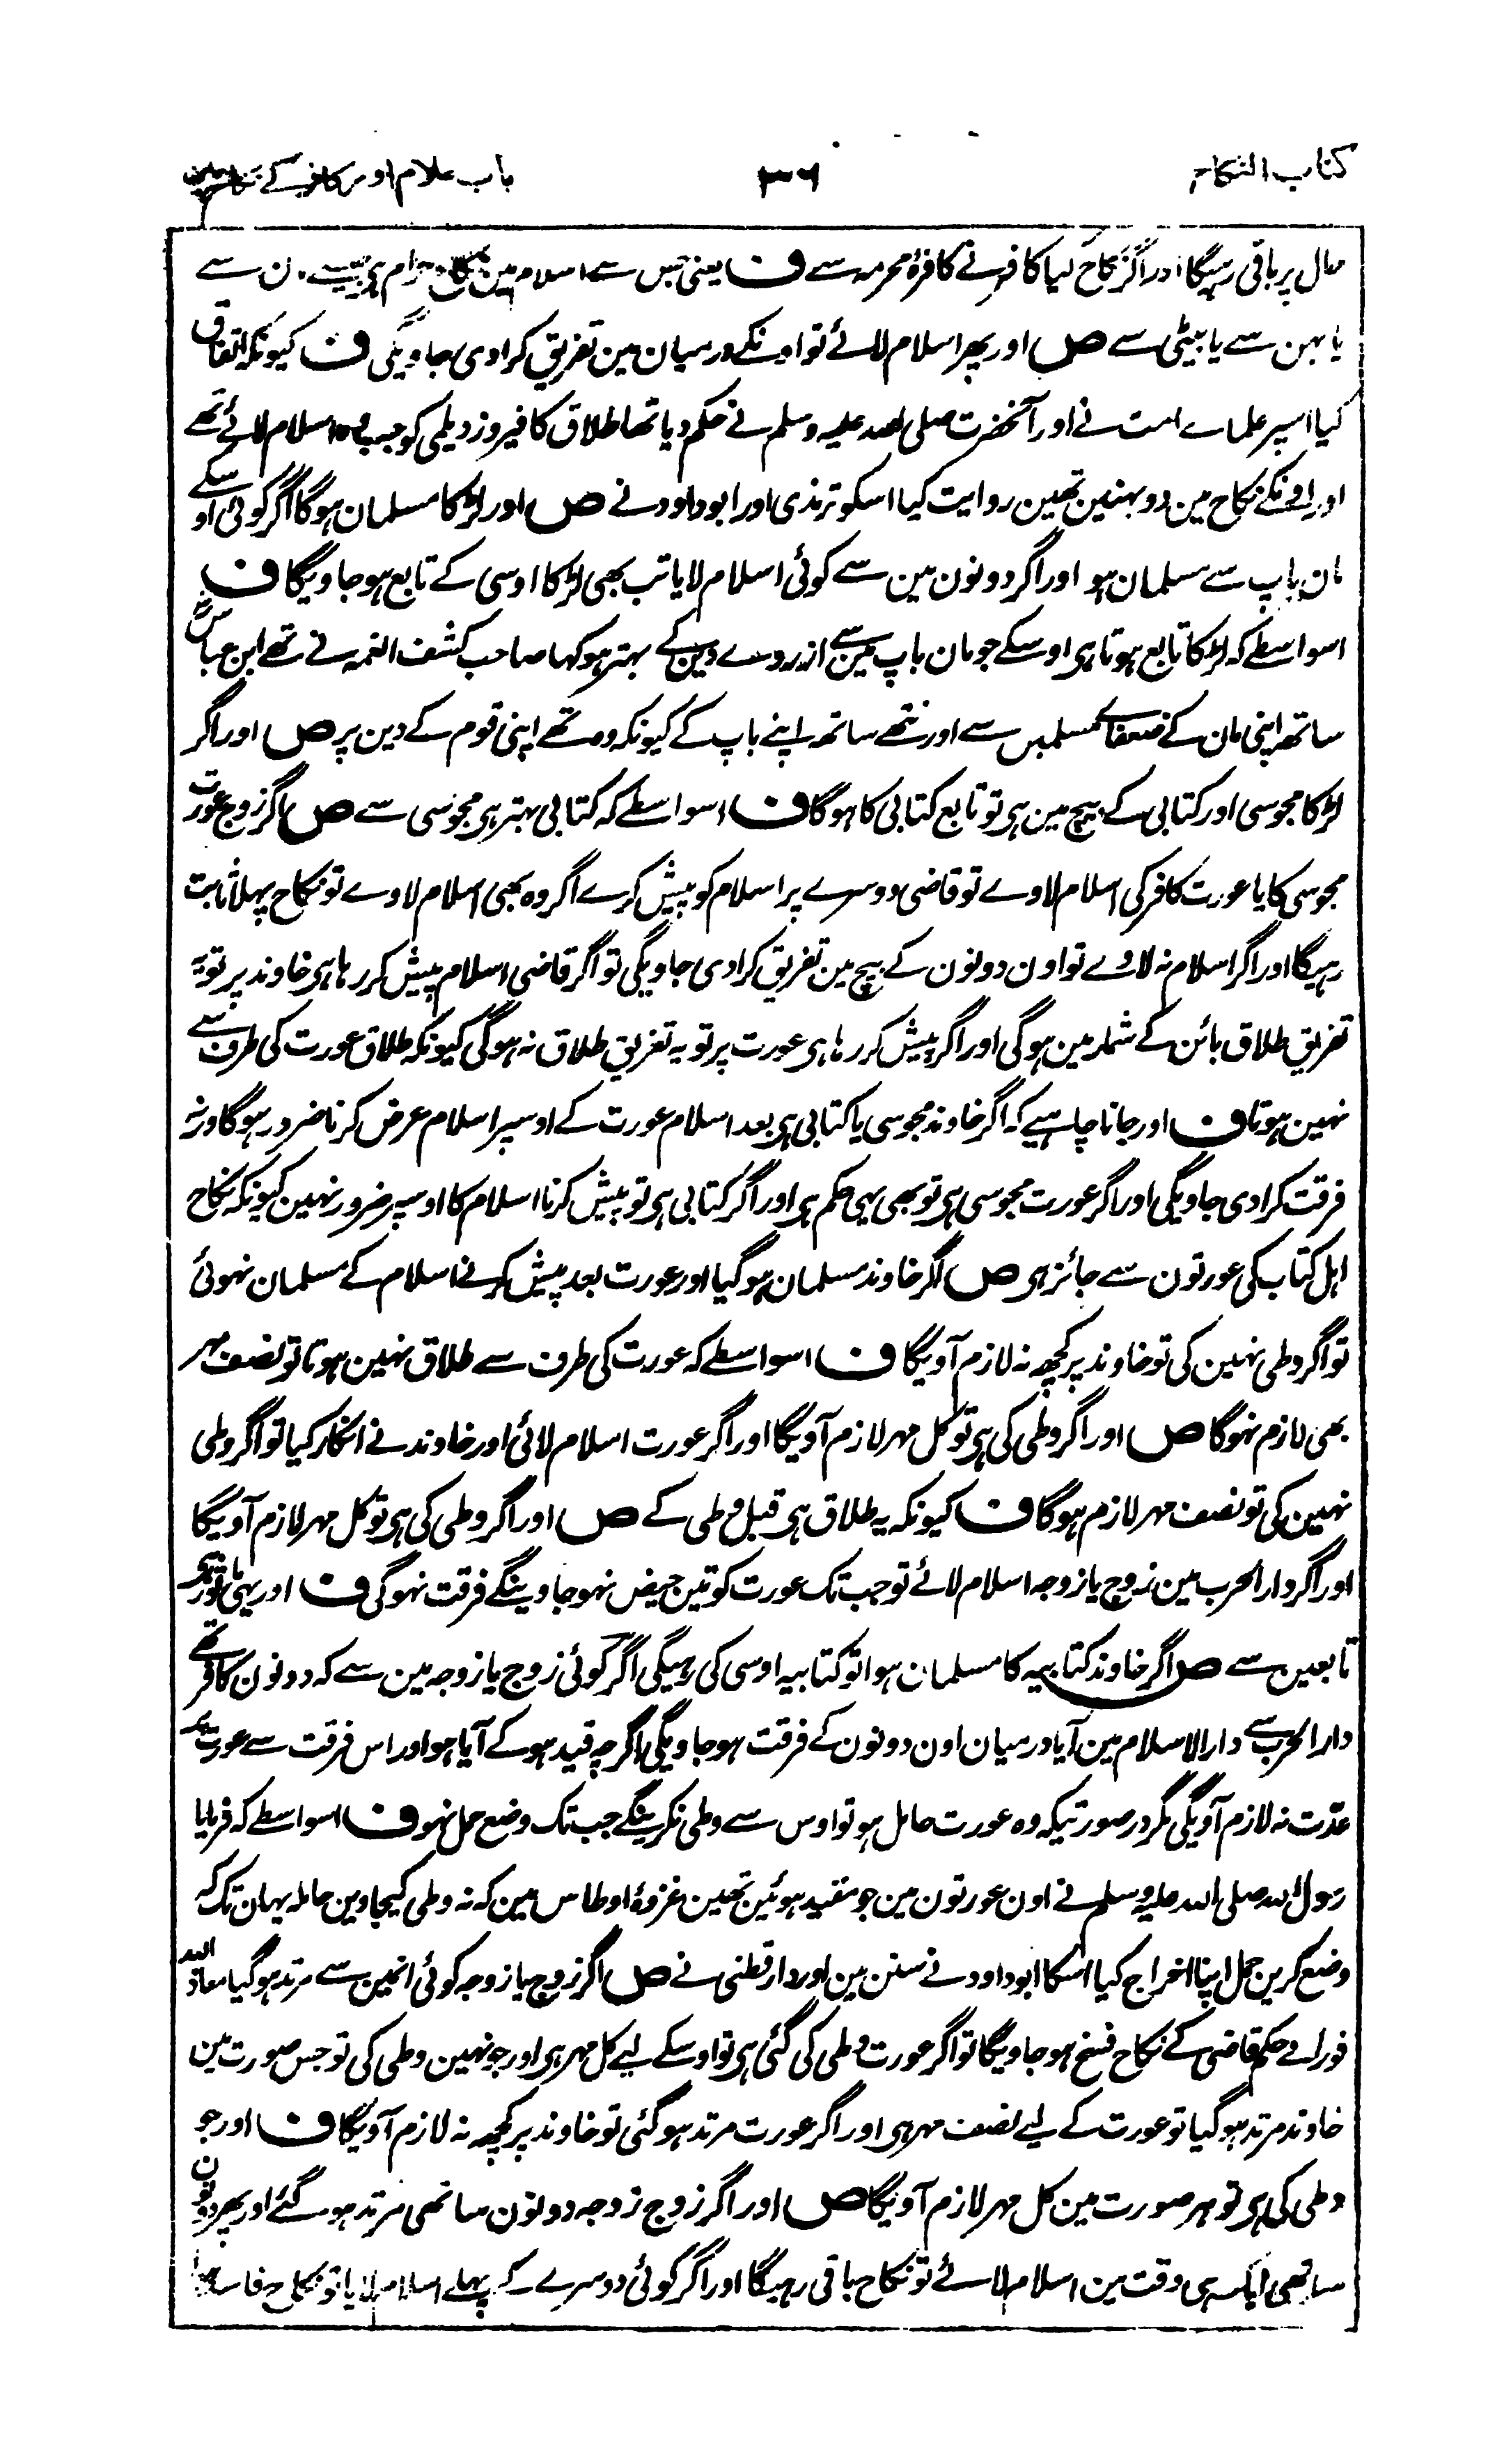 کتاب النکاح
۳۶
باب غلام اور کافر کے نکاح
حال پر باقی رہیگا اور اگر نکاح کیا کافر نے کافرۂ محرمہ سے ف یعنی جس سے اسلام مین نکاح حرام ہی جیسے مان سے
یا بہن سے یا بیٹی سے ص اور پھر اسلام لائے تو اونکے درمیان مین تفریق کرادی جاویگی ف کیونکہ اتفاق
کیا اسپر علماے امت نے اور آنحضرت صلی اللہ علیہ وسلم نے حکم دیا تھا طلاق کا فیروز دیلمی کو جب وہ اسلام لائے تھے
اور اونکے نکاح مین دو بہنین تھین روایت کیا اسکو ترمذی اور ابوداود نے ص اور لڑکا مسلمان ہوگا اگر کوئی اوسکے
مان باپ سے مسلمان ہو اور اگر دونون مین سے کوئی اسلام لایا تب بھی لڑکا اوسی کے تابع ہو جاویگا ف
اسواسطے کہ لڑکا تابع ہوتا ہی اوسکے جو مان باپ مین سے ازروے دین کے بہتر ہو کہا صاحب کشف الغمہ نے تھے ابن عباس
ساتھ اپنی مان کے ضعفاے مسلمین سے اور نتھے ساتھ اپنے باپ کے کیونکہ وہ تھے اپنی قوم کے دین پر ص اور اگر
لڑکا مجوسی اور کتابی کے بیچ مین ہی تو تابع کتابی کا ہوگا ف اسواسطے کہ کتابی بہتر ہی مجوسی سے ص اگر زوج عورت
مجوسی کا یا عورت کافر کی اسلام لاوے تو قاضی دوسرے پر اسلام کو پیش کرے اگر وہ بھی اسلام لاوے تو نکاح پہلا ثابت
رہیگا اور اگر اسلام نہ لاوے تو اون دونون کے بیچ مین تفریق کرادی جاویگی تو اگر قاضی اسلام پیش کر رہا ہی خاوند پر تو یہ
تفریق طلاق بائن کے شمار مین ہوگی اور اگر پیش کر رہا ہی عورت پر تو یہ تفریق طلاق نہ ہوگی کیونکہ طلاق عورت کی طرف سے
نہین ہوتا ف اور جاننا چاہیے کہ اگر خاوند مجوسی یا کتابی ہی بعد اسلام عورت کے اوسپر اسلام عرض کرنا ضرور ہوگا ورنہ
فرقت کرادی جاویگی اور اگر عورت مجوسی ہی تو بھی یہی حکم ہی اور اگر کتابی ہی تو پیش کرنا اسلام کا اوسپر ضرور نہین کیونکہ نکاح
اہل کتاب کی عورتون سے جائز ہی ص اگر خاوند مسلمان ہو گیا اور عورت بعد پیش کرنے اسلام کے مسلمان نہوئی
تو اگر وطی نہین کی تو خاوند پر کچھ نہ لازم آویگا ف اسواسطے کہ عورت کی طرف سے طلاق نہین ہوتا تو نصف مہر
بھی لازم نہوگا ص اور اگر وطی کی ہی تو کل مہر لازم آویگا اور اگر عورت اسلام لائی اور خاوند نے انکار کیا تو اگر وطی
نہین کی تو نصف مہر لازم ہوگا ف کیونکہ یہ طلاق ہی قبل وطی کے ص اور اگر وطی کی ہی تو کل مہر لازم آویگا
اور اگر دار الحرب مین زوج یا زوجہ اسلام لائے تو جب تک عورت کو تین حیض نہو جاوینگے فرقت نہوگی ف اور یہی ماثور ہی
تابعین سے ص اگر خاوند کتابیہ کا مسلمان ہوا تو کتابیہ اوسی کی رہیگی اگر کوئی زوج یا زوجہ مین سے کہ دونون کافر تھے
دار الحرب سے دار الاسلام مین آیا درمیان اون دونون کے فرقت ہو جاویگی اگرچہ قید ہو کے آیا ہو اور اس فرقت سے عورت پر
عدّت نہ لازم آویگی مگر در صورتیکہ وہ عورت حامل ہو تو اوس سے وطی نکرینگے جب تک وضع حمل نہو ف اسواسطے کہ فرمایا
رسول اللہ صلی اللہ علیہ وسلم نے اون عورتون مین جو مقید ہوئین تھین غزوۂ اوطاس مین کہ نہ وطی کیجاوین حاملہ یہان تک کہ
وضع کرین حمل اپنا اخراج کیا اسکا ابوداود نے سنن مین اور دارقطنی نے ص اگر زوج یا زوجہ کوئی انمین سے مرتد ہو گیا معاذ اللہ
فورا بے حکم قاضی کے نکاح فسخ ہو جاویگا تو اگر عورت وطی کی گئی ہی تو اوسکے لیے کل مہر ہی اور جو نہین وطی کی تو جس صورت مین
خاوند مرتد ہو گیا تو عورت کے لیے نصف مہر ہی اور اگر عورت مرتد ہو گئی تو خاوند پر کچھ نہ لازم آویگا ف اور جو
وطی کی ہی تو ہر صورت مین کل مہر لازم آویگا ص اور اگر زوج زوجہ دونون ساتھی مرتد ہو گئے اور پھر دونون
ساتھی ایک ہی وقت مین اسلام لائے تو نکاح باقی رہیگا اور اگر کوئی دوسرے کے پہلے اسلام لایا تو نکاح فاسد